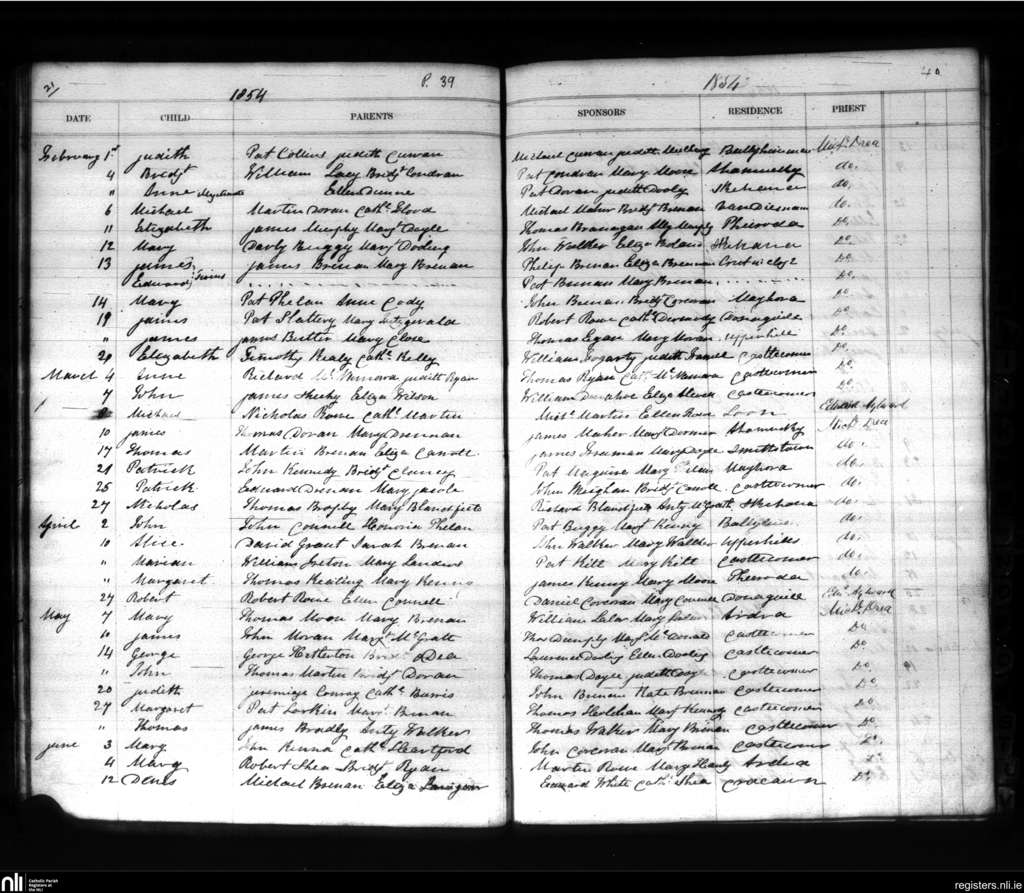 21
1854
P. 39
DATE CHILD PARENTS
February 1st Judith Pat Collins Judith Curran
4 Bridgt William Lacy Bridgt Condran
" Anne Ellen Dunne
6 Michael Martin Doran Cathe Flood
11 Elizabeth James Murphy Margt Doyle
12 Mary Darby Buggy Mary Dooling
13 James James Brenan Mary Brenan
Edward Twins
14 Mary Pat Phelan Anne Cody
19 James Pat Slattery Mary Fitzgerald
" James James Butler Mary Close
20 Elizabeth Timothy Healy Cathe Kelly
March 4 Anne Richard Mc Namara Judith Ryan
7 John James Sheehy Eliza Wilson
Michael Nicholas Rowe Cathe Martin
10 James Thomas Doran Mary Drennan
17 Thomas Martin Brenan Eliza Carroll
21 Patrick John Kennedy Bridgt Clancy
25 Patrick Edward Drenan Mary Jacob
27 Nicholas Thomas Brophy Mary Blanchfield
April 2 John John Connell Honoria Phelan
10 Alice David Grant Sarah Brenan
" Marian William Ireton Mary Landers
" Margaret Thomas Keating Mary Kenna
27 Robert Robert Rowe Ellen Connell
May 7 Mary Thomas Moon Mary Brenan
10 James John Moran Margt McGrath
14 George George Hetherton Dea
" John Thomas Martin Bridgt Doran
20 Judith Conray Cathe Burris
27 Margaret Pat Larkin Margt Brenan
" Thomas James Bradly Anty Walker
June 3 Mary John Kenna Cathe Heartford
4 Mary Robert Shea Bridgt Ryan
12 Denis Michael Brenan Eliza
1854
40
SPONSORS RESIDENCE PRIEST
Michael Curran Judith Michl Drea
Pat Condran Mary Moore do.
Pat Doran Judith Dooly Skehana do.
Michael Maher Bridgt Brenan VanDiesnam do.
Thomas Branagan Murphy Do.
John Walker Eliza Boland Skehana Do.
Philip Brenan Eliza Brennan Do.
Pat Brenan Mary Brenan Do.
John Brenan Bridgt Corcoran Maghora Do.
Robert Rowe Cathe Donaguile Do.
Thomas Egan Mary Moran Upperhill Do.
William Fogarty Judith Castlecomer Do.
Thomas Ryan Cathe McNamara Castlecomer Do.
William Donahoe Eliza Castlecomer Do.
Michl Martin Ellen Rowe Loon Edward Aylward
James Maher Margt Dormer Michl Drea
James Freeman Mary Doyle Smithstown do.
Pat Maguire Mary Maghora do.
John Meighan Bridgt Carroll Castlecomer do.
Richard Blanchfield Anty McGrath Skehana do.
Pat Buggy Margt Kenny do.
John Walker Mary Walker Upperhills do.
Pat Kitt Mary Kitt Castlecomer do.
James Kenny Mary Moore do.
Daniel Corcoran Mary Connell Donaguill Edd Aylward
William Lalor Mary Lalor Ardra Michl Drea
Thos Dunphy Margt McDonald Castlecomer Do
Laurence Dooling Ellen Dooling Castlecomer Do
Thomas Doyle Judith Doyle Castlecomer Do
John Brenan Kate Brennan Castlecomer Do
Thomas Holohan Mary Kennedy Castlecomer Do.
Thomas Walker Mary Brenan Castlecomer Do.
John Corcoran Margt Castlecomer Do.
Martin Rowe Mary Healy Ardra Do
Edward White Cathe Shea Do
nli Catholic Parish
Registers at
the NLI
registers.nli.ie